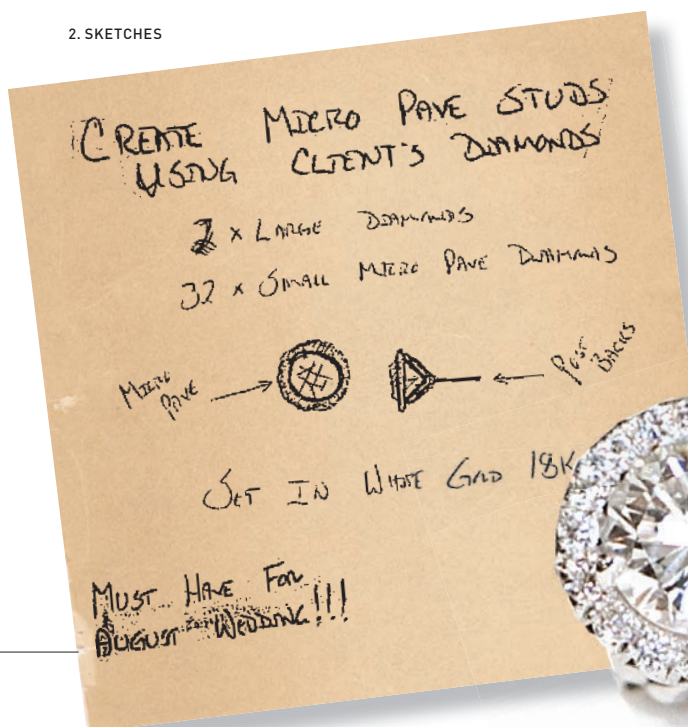 2. SKETCHES
CREATE MICRO PAVE STUDS
USING CLIENT'S DIAMONDS
2 x LARGE DIAMONDS
32 x SMALL MICRO PAVE DIAMONDS
MICRO
PAVE
POST
BACKS
SET IN WHITE GOLD 18K
MUST HAVE FOR
AUGUST WEDDING!!!